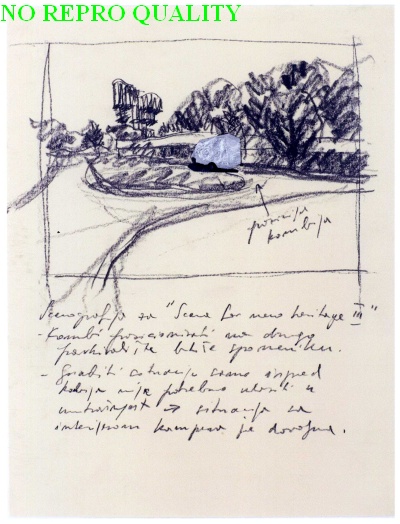 NO REPRO QUALITY
pozicija
kombija
Scenografija za "Scene for new heritage III"
- Kombi pozicionirati na drugo
parkiralište bliže spomeniku.
- samo ispred
kombija nije potrebno ulaziti u
unutrašnjost → situacija sa
interijerom kampera je dovoljna.